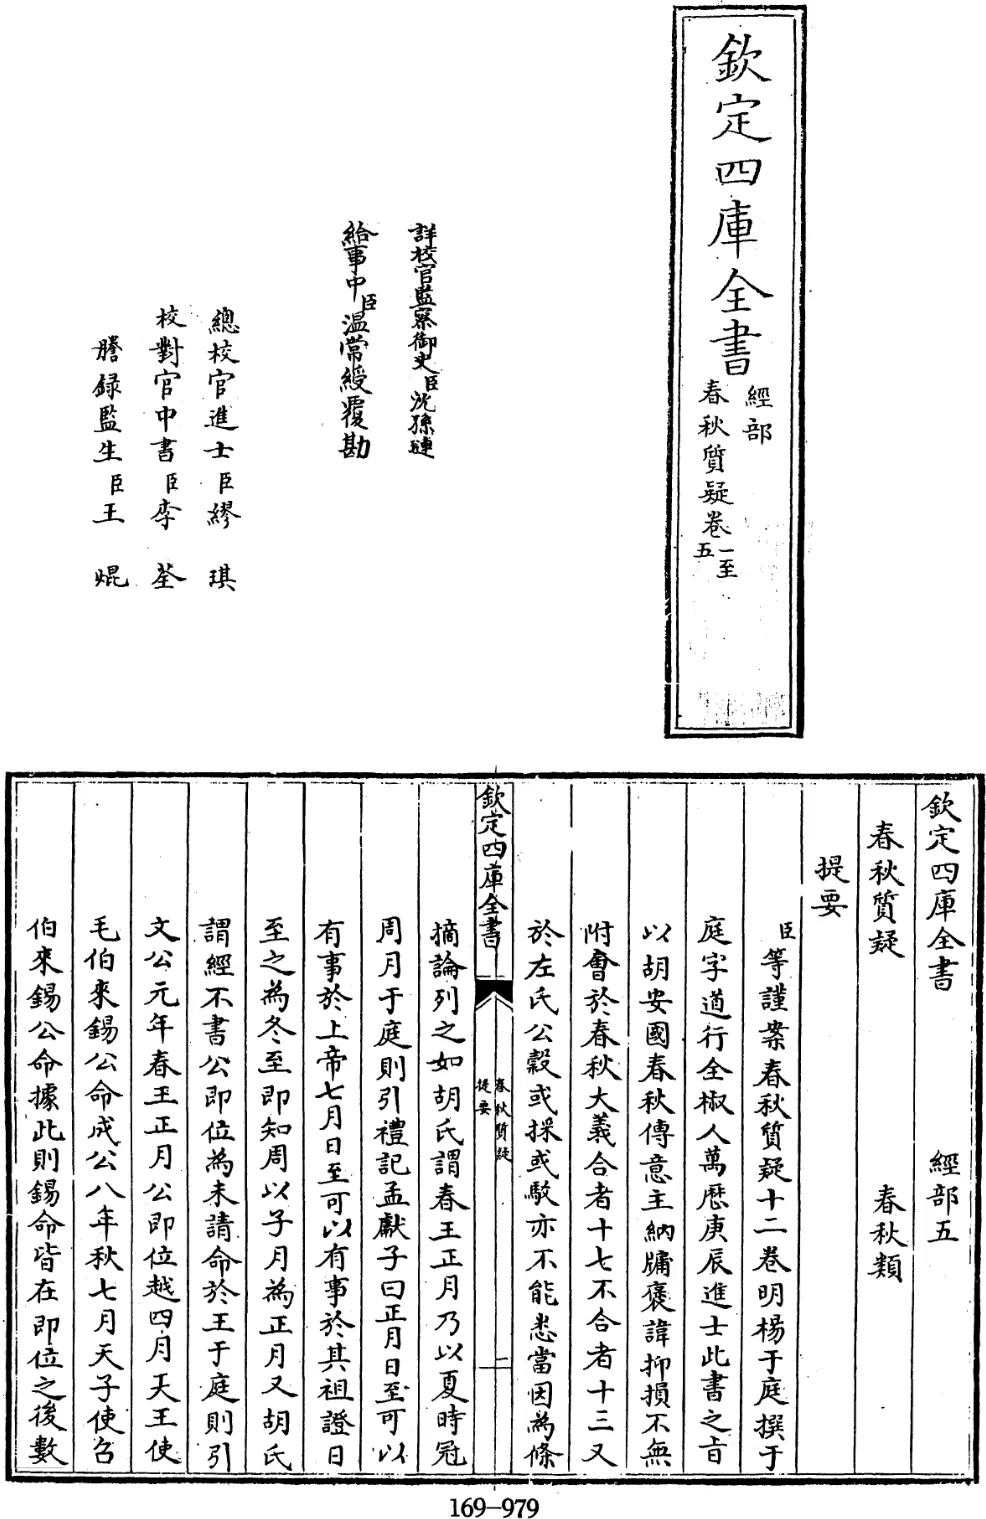 欽定四庫全書
經部
春秋質疑卷一至五
詳校官監察御史臣沈孫璉
給事中臣溫常綬覆勘
總校官進士臣繆琪
校對官中書臣李荃
謄錄監生臣王焜
欽定四庫全書 經部五
春秋質疑 春秋類
提要
臣等謹案春秋質疑十二卷明楊于庭撰于
庭字道行全椒人萬歷庚辰進士此書之旨
以胡安國春秋傳意主納牖褒諱抑損不無
附會於春秋大義合者十七不合者十三又
於左氏公穀或採或駁亦不能悉當因為條
欽定四庫全書
春秋質疑
提要
二
摘論列之如胡氏謂春王正月乃以夏時冠
周月于庭則引禮記孟獻子曰正月日至可以
有事於上帝七月日至可以有事於其祖證日
至之為冬至即知周以子月為正月又胡氏
謂經不書公即位為未請命於王于庭則引
文公元年春王正月公即位越四月天王使
毛伯來錫公命成公八年秋七月天子使召
伯來錫公命據此則錫命皆在即位之後數
169-979